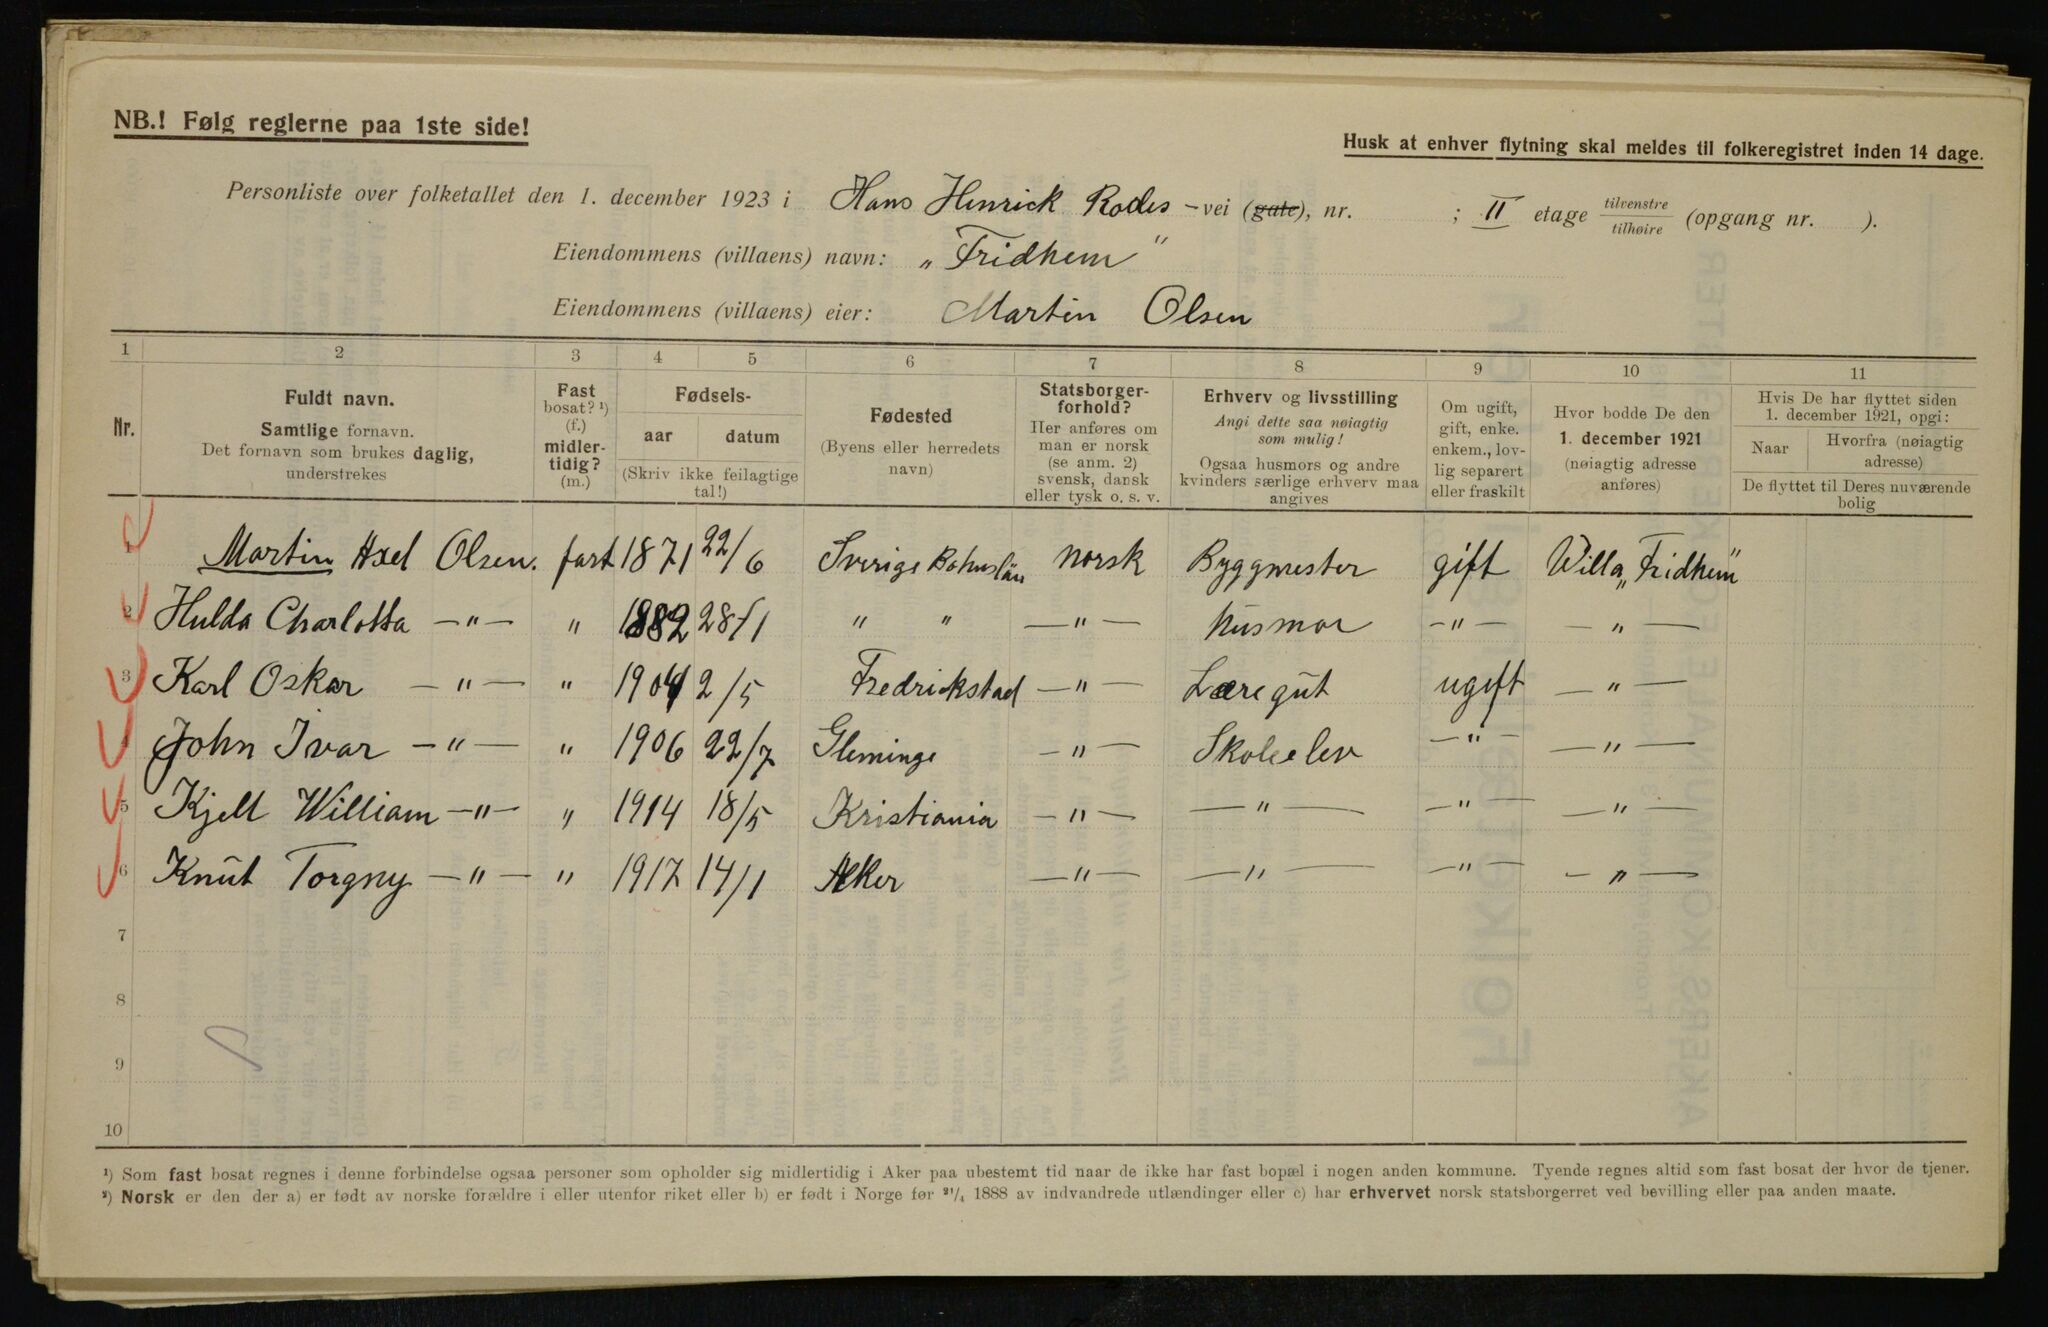 NB.! Følg reglerne paa 1ste side!
Husk at enhver flytning skal meldes til folkeregistret inden 14 dage.
Personliste over folketallet den 1. december 1923 i Hans Henrick Rodes -vei (gate), nr. ; II etage tilvenstre/tilhøire (opgang nr. ).
Eiendommens (villaens) navn: „Fridhem"
Eiendommens (villaens) eier: Martin Olsen
1 2 3 4 5 6 7 8 9 10 11
Nr.
Fuldt navn.
Samtlige fornavn.
Det fornavn som brukes daglig,
understrekes
Fast
bosat? ¹)
(f.)
midler-
tidig?
(m.)
Fødsels-
aar datum
(Skriv ikke feilagtige
tal!)
Fødested
(Byens eller herredets
navn)
Statsborger-
forhold?
Her anføres om
man er norsk
(se anm. 2)
svensk, dansk
eller tysk o. s. v.
Erhverv og livsstilling
Angi dette saa nøiagtig
som mulig!
Ogsaa husmors og andre
kvinders særlige erhverv maa
angives
Om ugift,
gift, enke.
enkem., lov-
lig separert
eller fraskilt
Hvor bodde De den
1. december 1921
(nøiagtig adresse
anføres)
Hvis De har flyttet siden
1. december 1921, opgi:
Naar Hvorfra (nøiagtig
adresse)
De flyttet til Deres nuværende
bolig
1 Martin Axel Olsen. fast 1871 22/6 Sverige Bohuslän norsk Byggmester gift Willa „Fridhem"
2 Hulda Charlotta —"— " 1882 28/1 " " —"— Husmor —"— —"—
3 Karl Oskar —"— " 1904 2/5 Fredrikstad —"— Læregut ugift —"—
4 John Ivar —"— " 1906 22/7 Gleminge —"— Skoleelev —"— —"—
5 Kjell William —"— " 1914 18/5 Kristiania —"— —"— —"— —"—
6 Knut Torgny —"— " 1917 14/1 Aker —"— —"— —"— —"—
7
8
9
10
¹) Som fast bosat regnes i denne forbindelse ogsaa personer som opholder sig midlertidig i Aker paa ubestemt tid naar de ikke har fast bopæl i nogen anden kommune. Tyende regnes altid som fast bosat der hvor de tjener.
²) Norsk er den der a) er født av norske forældre i eller utenfor riket eller b) er født i Norge før ²¹/₄ 1888 av indvandrede utlændinger eller c) har erhvervet norsk statsborgerret ved bevilling eller paa anden maate.